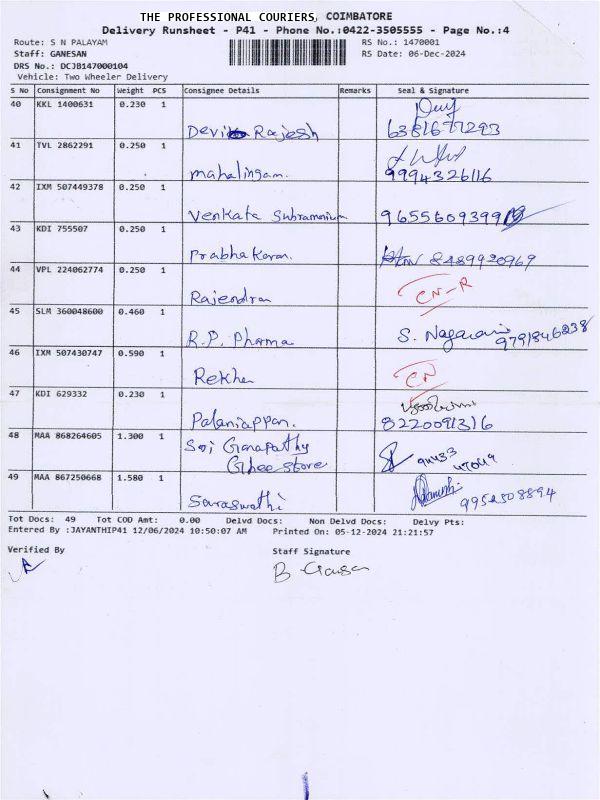 THE PROFESSIONAL COURIERS, COIMBATORE
Delivery Runsheet - P41 - Phone No.:0422-3505555 - Page No.:4
Route: S N PALAYAM RS No.: 1470001
Staff: GANESAN RS Date: 06-Dec-2024
DRS No.: DCJB147000104
Vehicle: Two Wheeler Delivery
S No Consignment No Weight PCS Consignee Details Remarks Seal & Signature
40 KKL 1400631 0.230 1
Devi Rajesh 6381677293
41 TVL 2862291 0.250 1
mahalingam. 9994326116
42 IXM 507449378 0.250 1
Venkata Subramanium 9655609399
43 KDI 755507 0.250 1
Prabhakaran. 8489920969
44 VPL 224062774 0.250 1
Rajendran CN-R
45 SLM 360048600 0.460 1
R.P. Pharma S. Nagarani 9791846238
46 IXM 507430747 0.590 1
Rekha CN
47 KDI 629332 0.230 1
Palaniappan. 8220091316
48 MAA 868264605 1.300 1 Sri Ganapathy
Ghee store 94433
47049
49 MAA 867250668 1.580 1
Saraswathi 9952508894
Tot Docs: 49 Tot COD Amt: 0.00 Delvd Docs: Non Delvd Docs: Delvy Pts:
Entered By :JAYANTHIP41 12/06/2024 10:50:07 AM Printed On: 05-12-2024 21:21:57
Verified By Staff Signature
B Ganesan